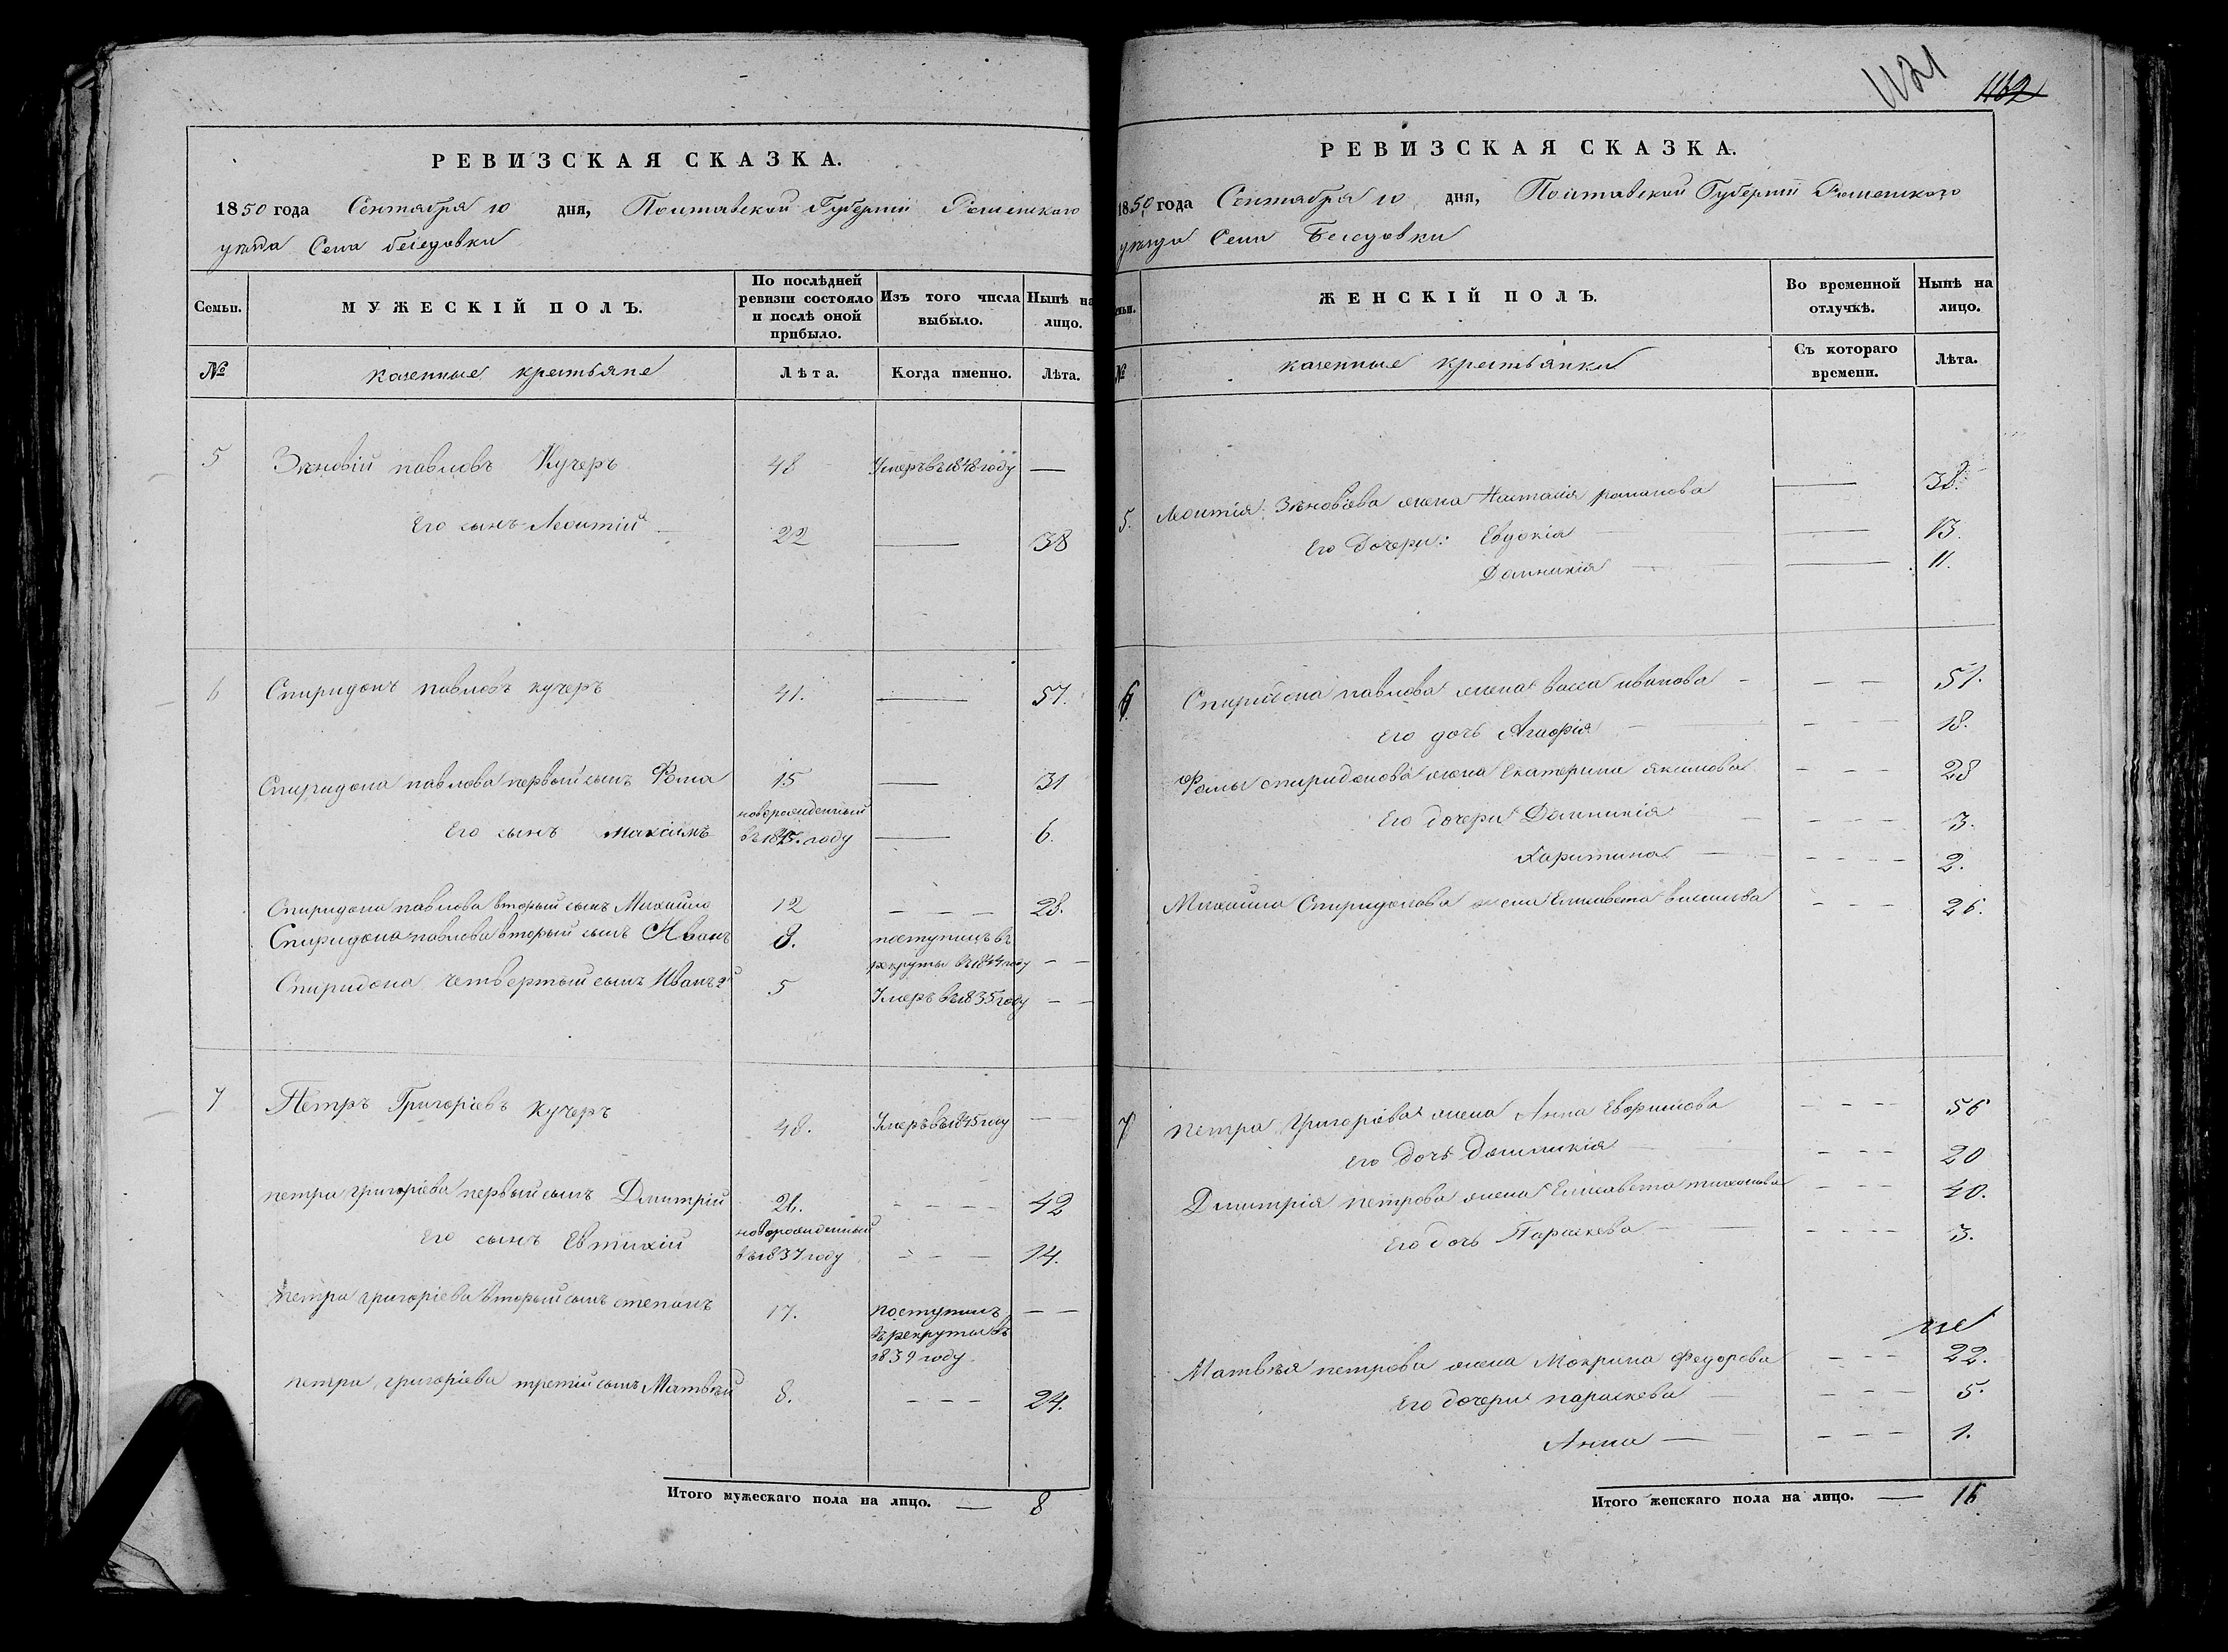 РЕВИЗСКАЯ СКАЗКА.
1850 года Сентября 10 дня, Полтавской Губерніи Роменского
уезда Села беседовки
Семьи. МУЖЕСКІЙ ПОЛЪ. По послѣдней ревизіи состояло и послѣ оной прибыло. Изъ того числа выбыло. Нынѣ на лицо.
№ казенные крестьяне Лѣта. Когда именно. Лѣта.
5 Зѣновій павловъ Кучеръ 48 Умеръ въ 1848 году —
Его сынъ Леонтій 22 — 38
6 Спиридонъ павловъ кучеръ 41. — 57.
Спиридона павлова первый сынъ Фома 15 — 31
новорожденный
Его сынъ Максимъ въ 1845. году — 6.
Спиридона павлова вторый сынъ Михайло 12 — — — 28.
Спиридона павлова вторый сынъ Иванъ 8. поступилъ въ
рекруты въ 1844 году — —
Спиридона четвертый сынъ Иванъ 2й 5 Умеръ въ 1835 году — —
7 Петръ Григоріевъ кучеръ 48. Умеръ въ 1845 году — —
петра григоріева первый сынъ Дмитрій 26. — — — — 42
новорожденный
Его сынъ Евтихій въ 1837 году — — — 14.
петра григоріева вторый сынъ степанъ 17. поступилъ — —
въ рекруты въ
1839 году.
петра григоріева третій сынъ Матвѣй 8. — — — 24.
Итого мужескаго пола на лицо. — 8
1121
1132
РЕВИЗСКАЯ СКАЗКА.
1850 года Сентября 10 дня, Полтавской Губерніи Роменского
уезда Села Беседовки
ЖЕНСКІЙ ПОЛЪ. Во временной отлучкѣ. Нынѣ на лицо.
№ казенные крестьянки Съ котораго времени. Лѣта.
5. Леонтія Зѣновіева жена Настасія романова — 38.
Его Дочери: Евдокія — — 13.
Домникія — — 11.
6. Спиридона павлова жена васса иванова — — — 51.
Его дочь Агафія — — — 18.
Фомы спиридонова жена Екатерина якимова — — — 28
Его дочери Домникія — — — — 3.
Харитина — — — — — 2.
Михайла Спиридонова жена Елисавета васильева — — — 26.
7 петра Григоріева жена Анна Евфимова — — — 56
Его дочь Домникія — — — 20
Дмитрія петрова жена Елисавета тихонова — — — 40.
Его дочь Параскева — — — — — 3.
Матвѣя петрова жена Мокрина Федорова — — — 22.
Его дочери параскева — — — — 5.
Анна — — — — 1.
Итого женскаго пола на лицо. — 16